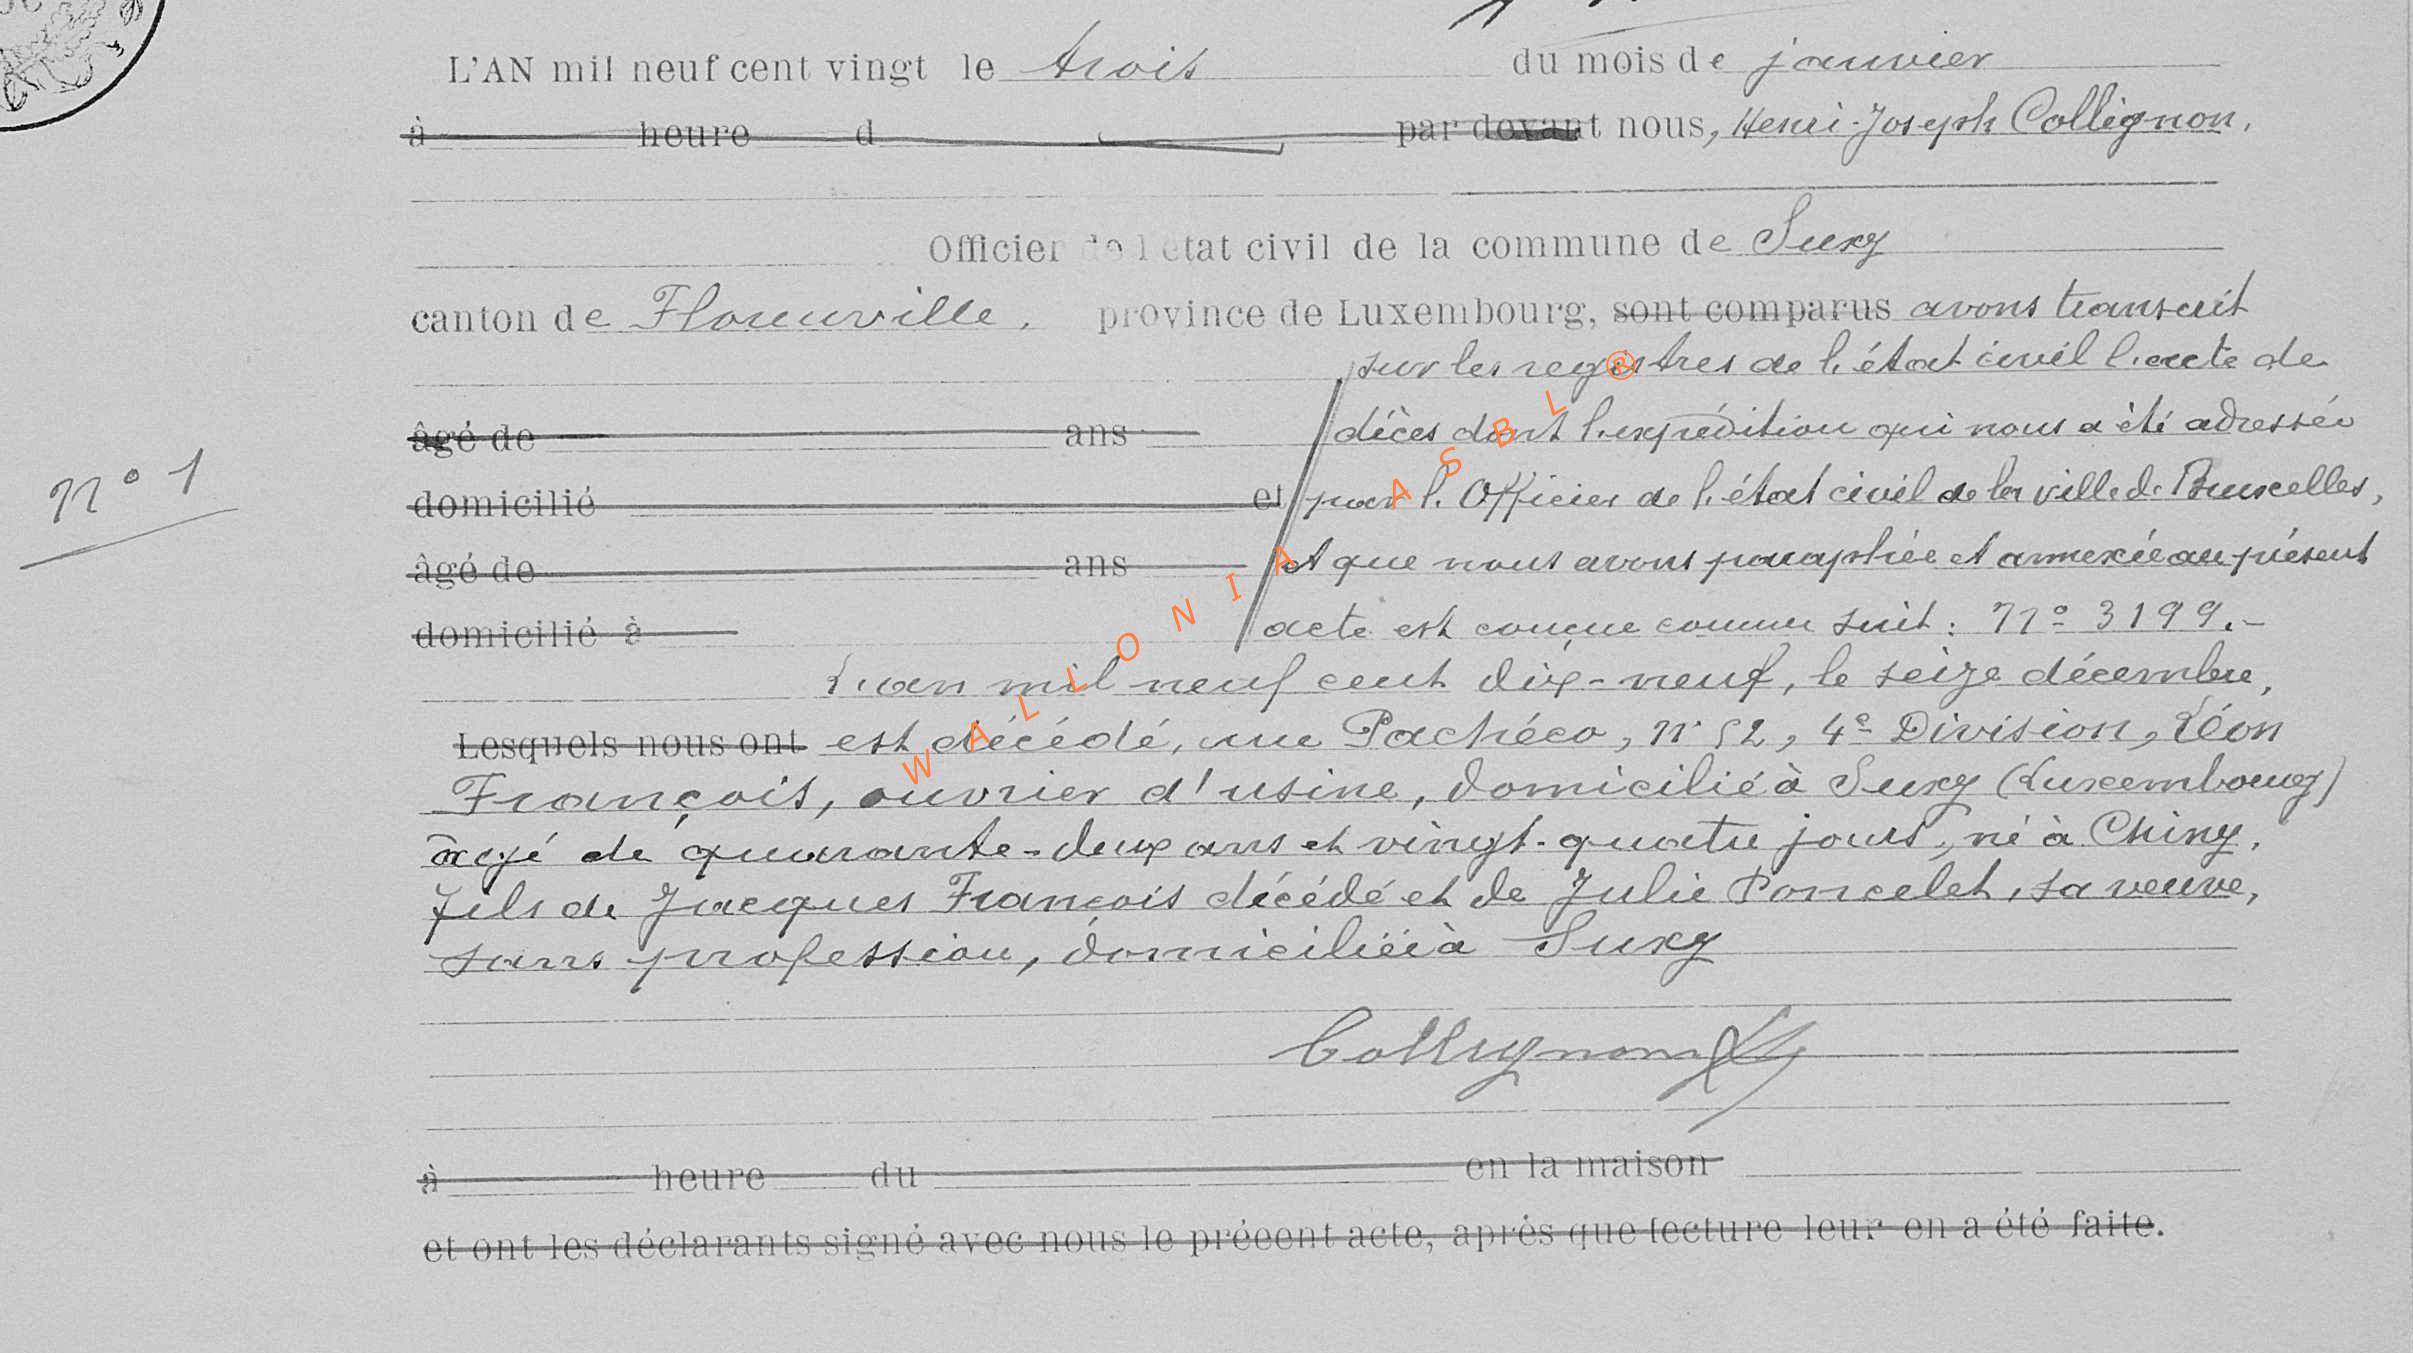 L'AN mil neuf cent vingt le trois du mois de janvier
à heure d par devant nous, Henri-Joseph Collignon.
Officier de l'état civil de la commune de Suxy
canton de Florenville. province de Luxembourg, sont comparus avons transcrit
sur les registres de l'état civil l'acte de
âgé de ans décès dont l'expédition qui nous a été adressée
domicilié et par l'Officier de l'état civil de la ville de Bruxelles,
âgé de ans et que nous avons paraphée et annexée au présent
domicilié à acte est conçue comme suit : N° 3199.-
L'an mil neuf cent dix-neuf, le seize décembre,
Lesquels nous ont est décédé, rue Pachéco, N° 52, 4e Division, Léon
François, ouvrier d'usine, domicilié à Suxy (Luxembourg)
âgé de quarante-deux ans et vingt-quatre jours, né à Chiny.
fils de Jacques François décédé et de Julie Poncelet, sa veuve,
sans profession, domiciliée à Suxy
Collignon
à heure du en la maison
et ont les déclarants signé avec nous le précent acte, après que lecture leur en a été faite.
N° 1
WALLONIA ASBL ®